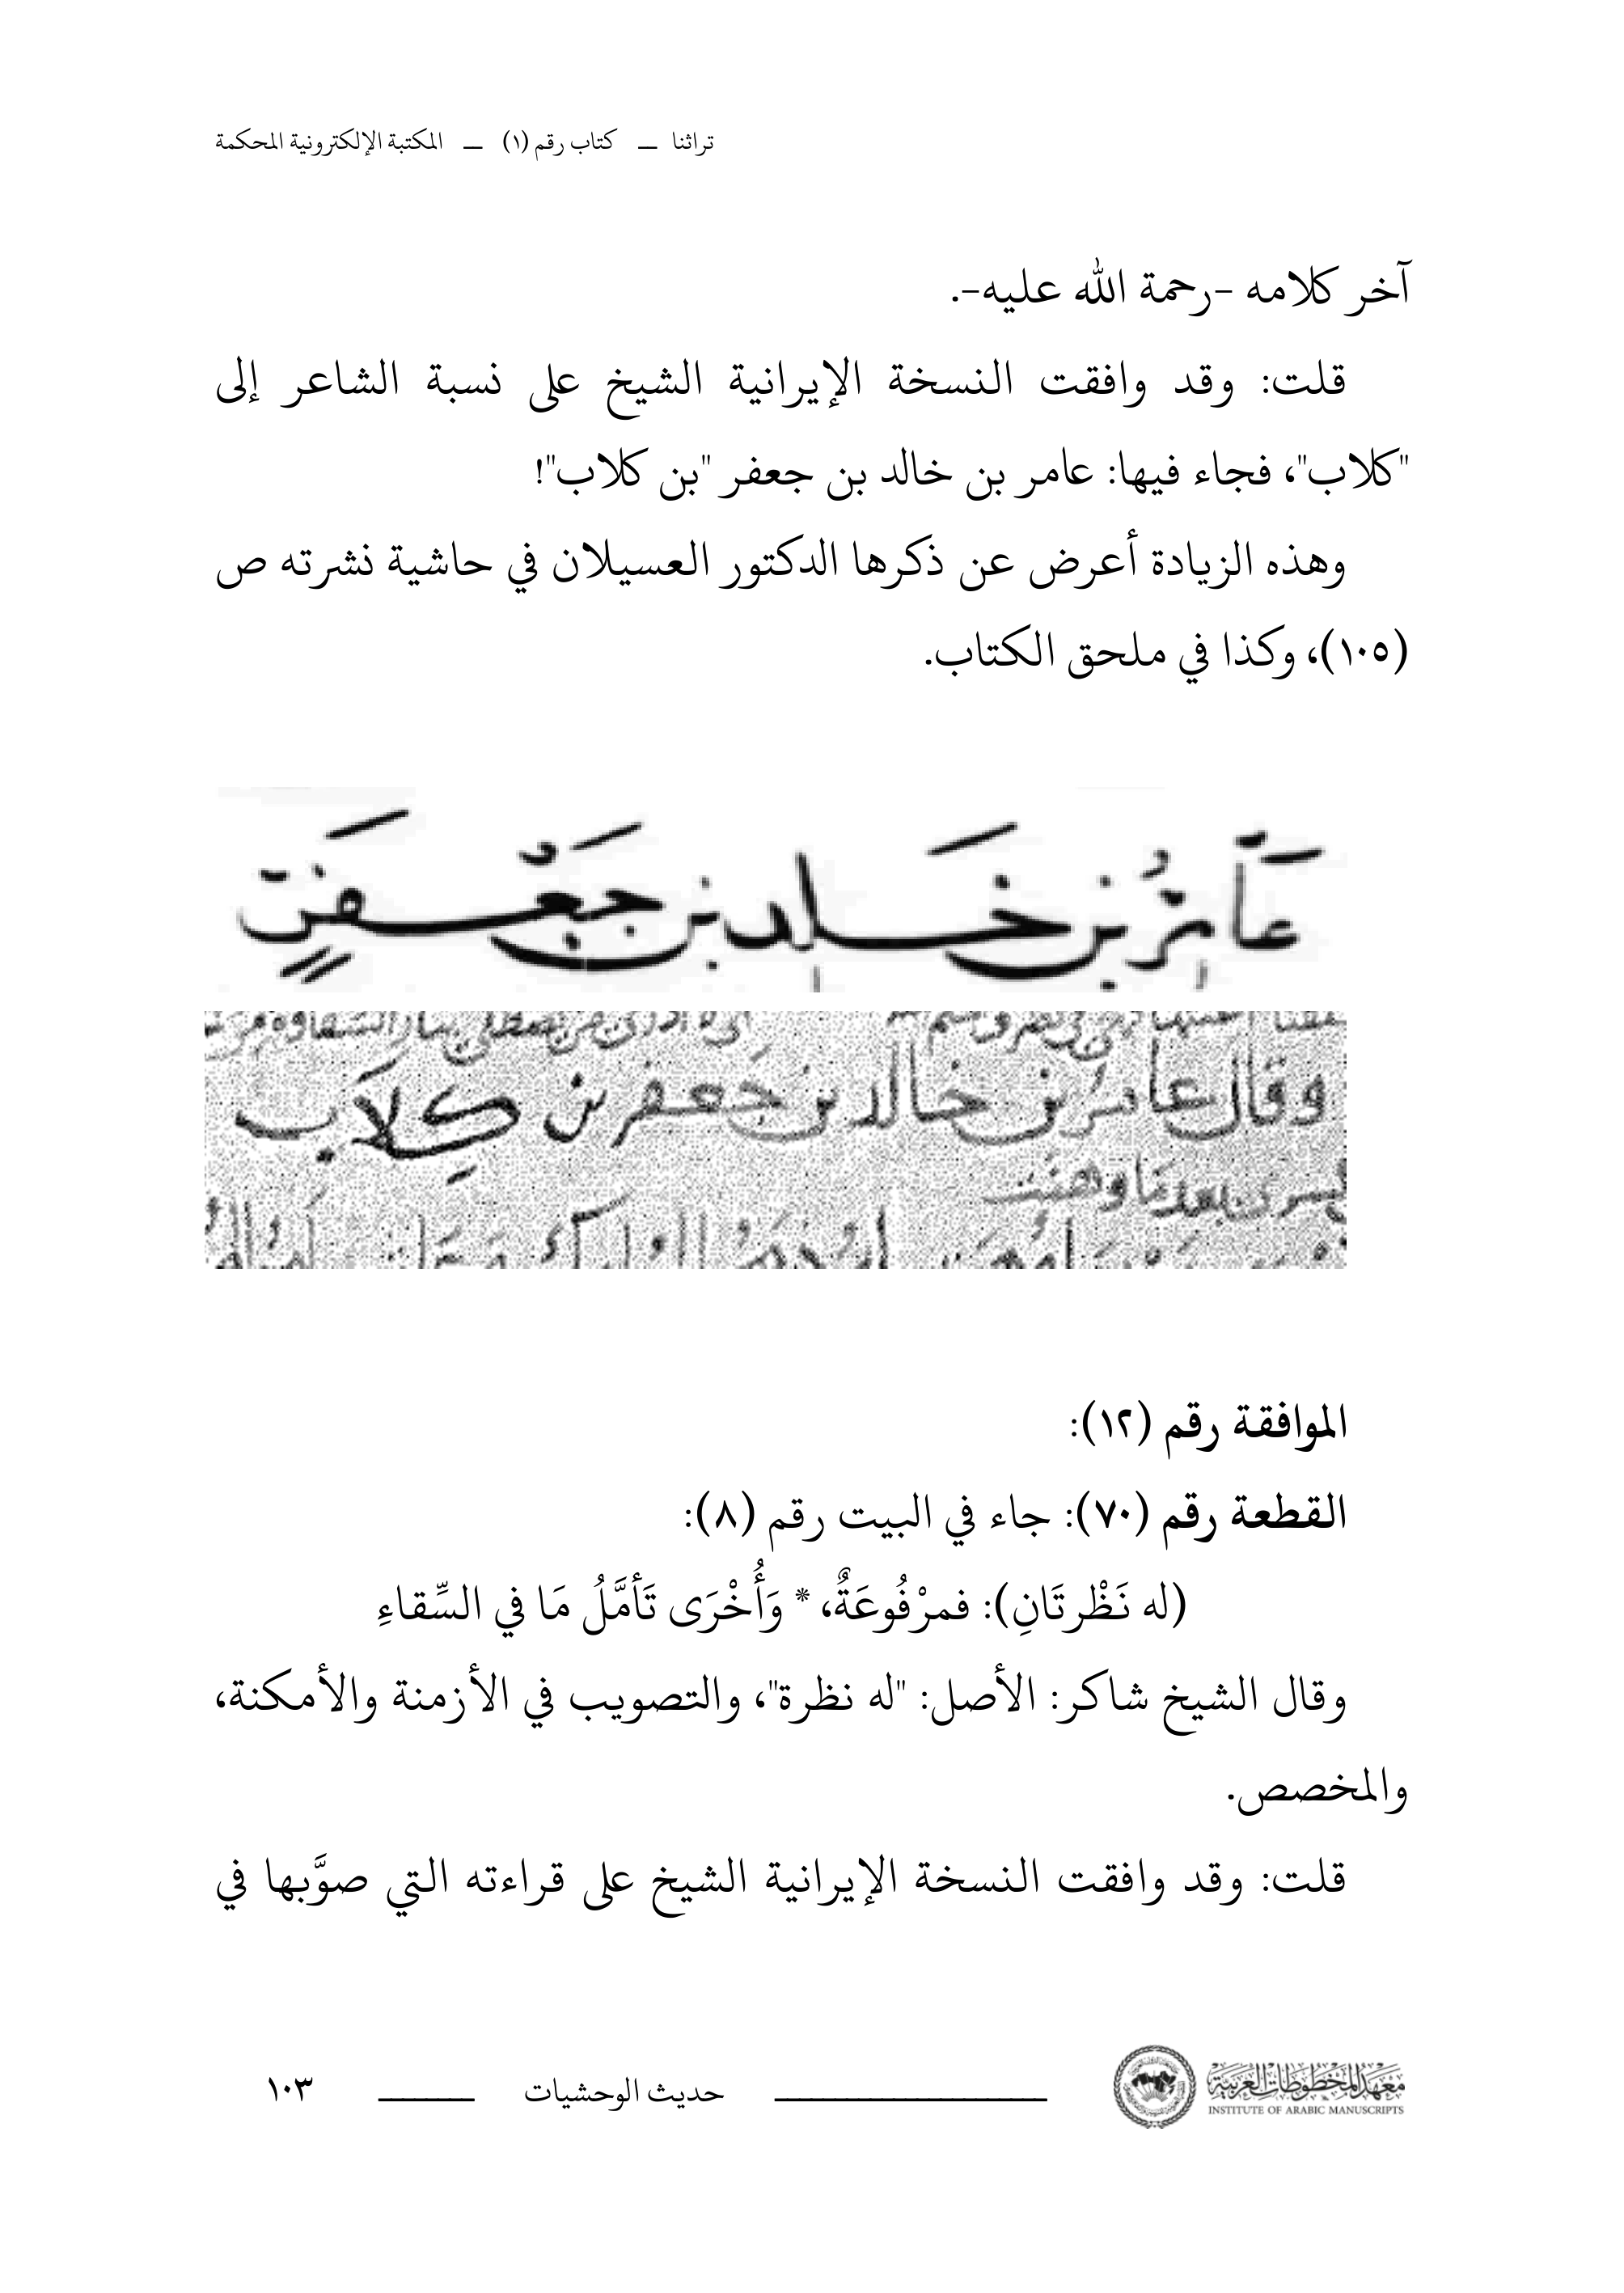 تراثنا ـــ كتاب رقم (١) ـــ المكتبة الإلكترونية المحكمة
آخر كلامه -رحمة الله عليه-.
قلت: وقد وافقت النسخة الإيرانية الشيخ على نسبة الشاعر إلى
"كلاب"، فجاء فيها: عامر بن خالد بن جعفر "بن كلاب"!
وهذه الزيادة أعرض عن ذكرها الدكتور العسيلان في حاشية نشرته ص
(١٠٥)، وكذا في ملحق الكتاب.
عَامِرُ بن خَلد بن جَعْفَرٍ
وقال عامر بن خالد بن جَعفر بن كِلاَب
بعدما وهنت
الموافقة رقم (١٢):
القطعة رقم (٧٠): جاء في البيت رقم (٨):
(له نَظْرتَانِ): فمرْفُوعَةٌ، * وَأُخْرَى تَأمَّلُ مَا في السِّقاءِ
وقال الشيخ شاكر: الأصل: "له نظرة"، والتصويب في الأزمنة والأمكنة،
والمخصص.
قلت: وقد وافقت النسخة الإيرانية الشيخ على قراءته التي صوَّبها في
معهد المخطوطات العربية
INSTITUTE OF ARABIC MANUSCRIPTS
حديث الوحشيات
١٠٣